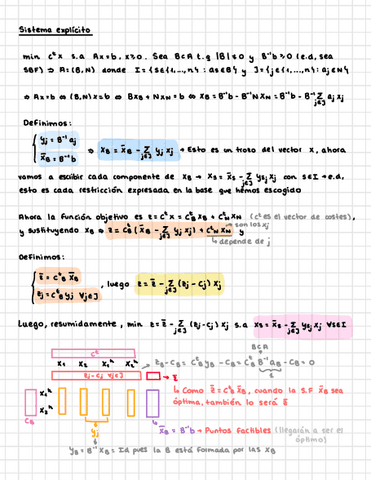 Sistema explícito
min cᵗx s.a Ax=b, x≥0. Sea B⊂A t.q |B|≠0 y B⁻¹b≥0 (e.d, sea
SBF) ⇒ A=(B,N) donde I={s∈{1,...,n}: as∈B} y J={j∈{1,...,n}: aj∈N}
⇒ Ax=b ⇔ (B,N)x=b ⇔ BxB+NxN=b ⇔ xB=B⁻¹b-B⁻¹NxN=B⁻¹b-B⁻¹∑j∈J aj xj
Definimos:
yj=B⁻¹aj
x̄B=B⁻¹b
⇒ xB=x̄B-∑j∈J yj xj → Esto es un trozo del vector x, ahora
vamos a escribir cada componente de xB → xs=x̄s-∑j∈J ysj xj con s∈I → e.d,
esto es cada restricción expresada en la base que hemos escogido
Ahora la función objetivo es z=cᵗx=cᵗB xB+cᵗN xN (cᵗ es el vector de costes),
y sustituyendo xB ⇒ z=cᵗB(x̄B-∑j∈J yj xj)+cᵗN xN → son los xj
↳ depende de j
Definimos:
z̄=cᵗB x̄B
zj=cᵗB yj ∀j∈J
, luego z=z̄-∑j∈J(zj-cj)xj
Luego, resumidamente, min z=z̄-∑j∈J(zj-cj)xj s.a xs=x̄s-∑j∈J ysj xj ∀s∈I
B⊂A
cᵗ
x1 x2 x1ʰ x2ʰ
zB-cB=cᵗB yB-cB=cᵗB B⁻¹aB-cB=0
zj-cj ∀j∈J
z̄
↳ Como z̄=cᵗB x̄B, cuando la S.F x̄B sea
óptima, también lo será z̄
x1ʰ
x2ʰ
cB
yj
x̄B=B⁻¹b → Puntos factibles (llegarán a ser el
óptimo)
yB=B⁻¹xB=Id pues la B está formada por las xB